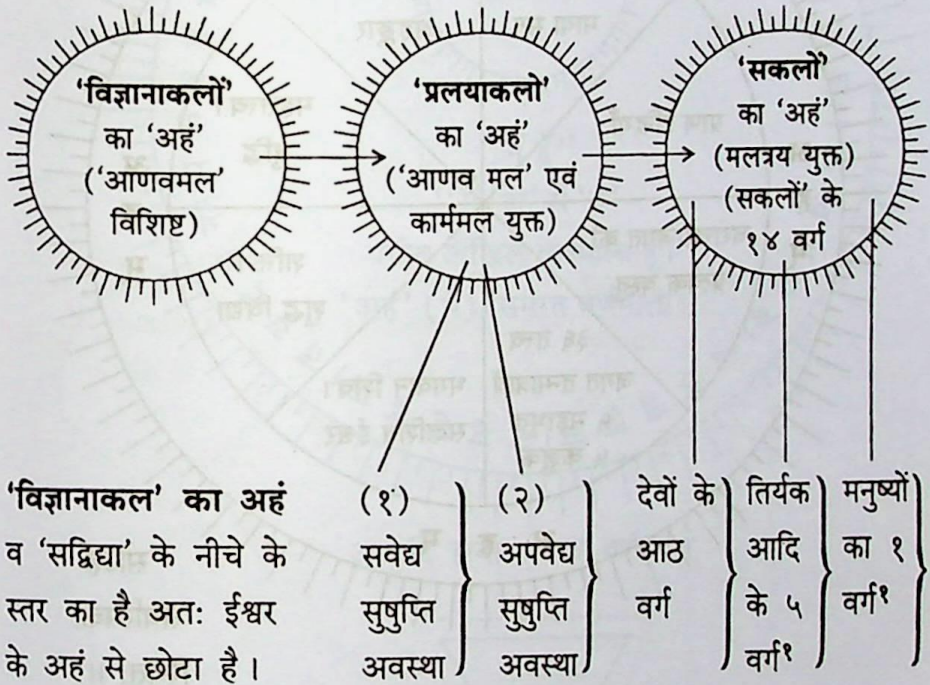 ‘विज्ञानाकलों’
का ‘अहं’
(‘आणवमल’
विशिष्ट)
‘प्रलयाकलो’
का ‘अहं’
(‘आणव मल’ एवं
कार्ममल युक्त)
‘सकलों’
का ‘अहं’
(मलत्रय युक्त)
(सकलों’ के
१४ वर्ग
‘विज्ञानाकल’ का अहं
व ‘सद्विद्या’ के नीचे के
स्तर का है अतः ईश्वर
के अहं से छोटा है।
(१)
सवेद्य
सुषुप्ति
अवस्था
(२)
अपवेद्य
सुषुप्ति
अवस्था
देवों के
आठ
वर्ग
तिर्यक
आदि
के ५
वर्ग१
मनुष्यों
का १
वर्ग१